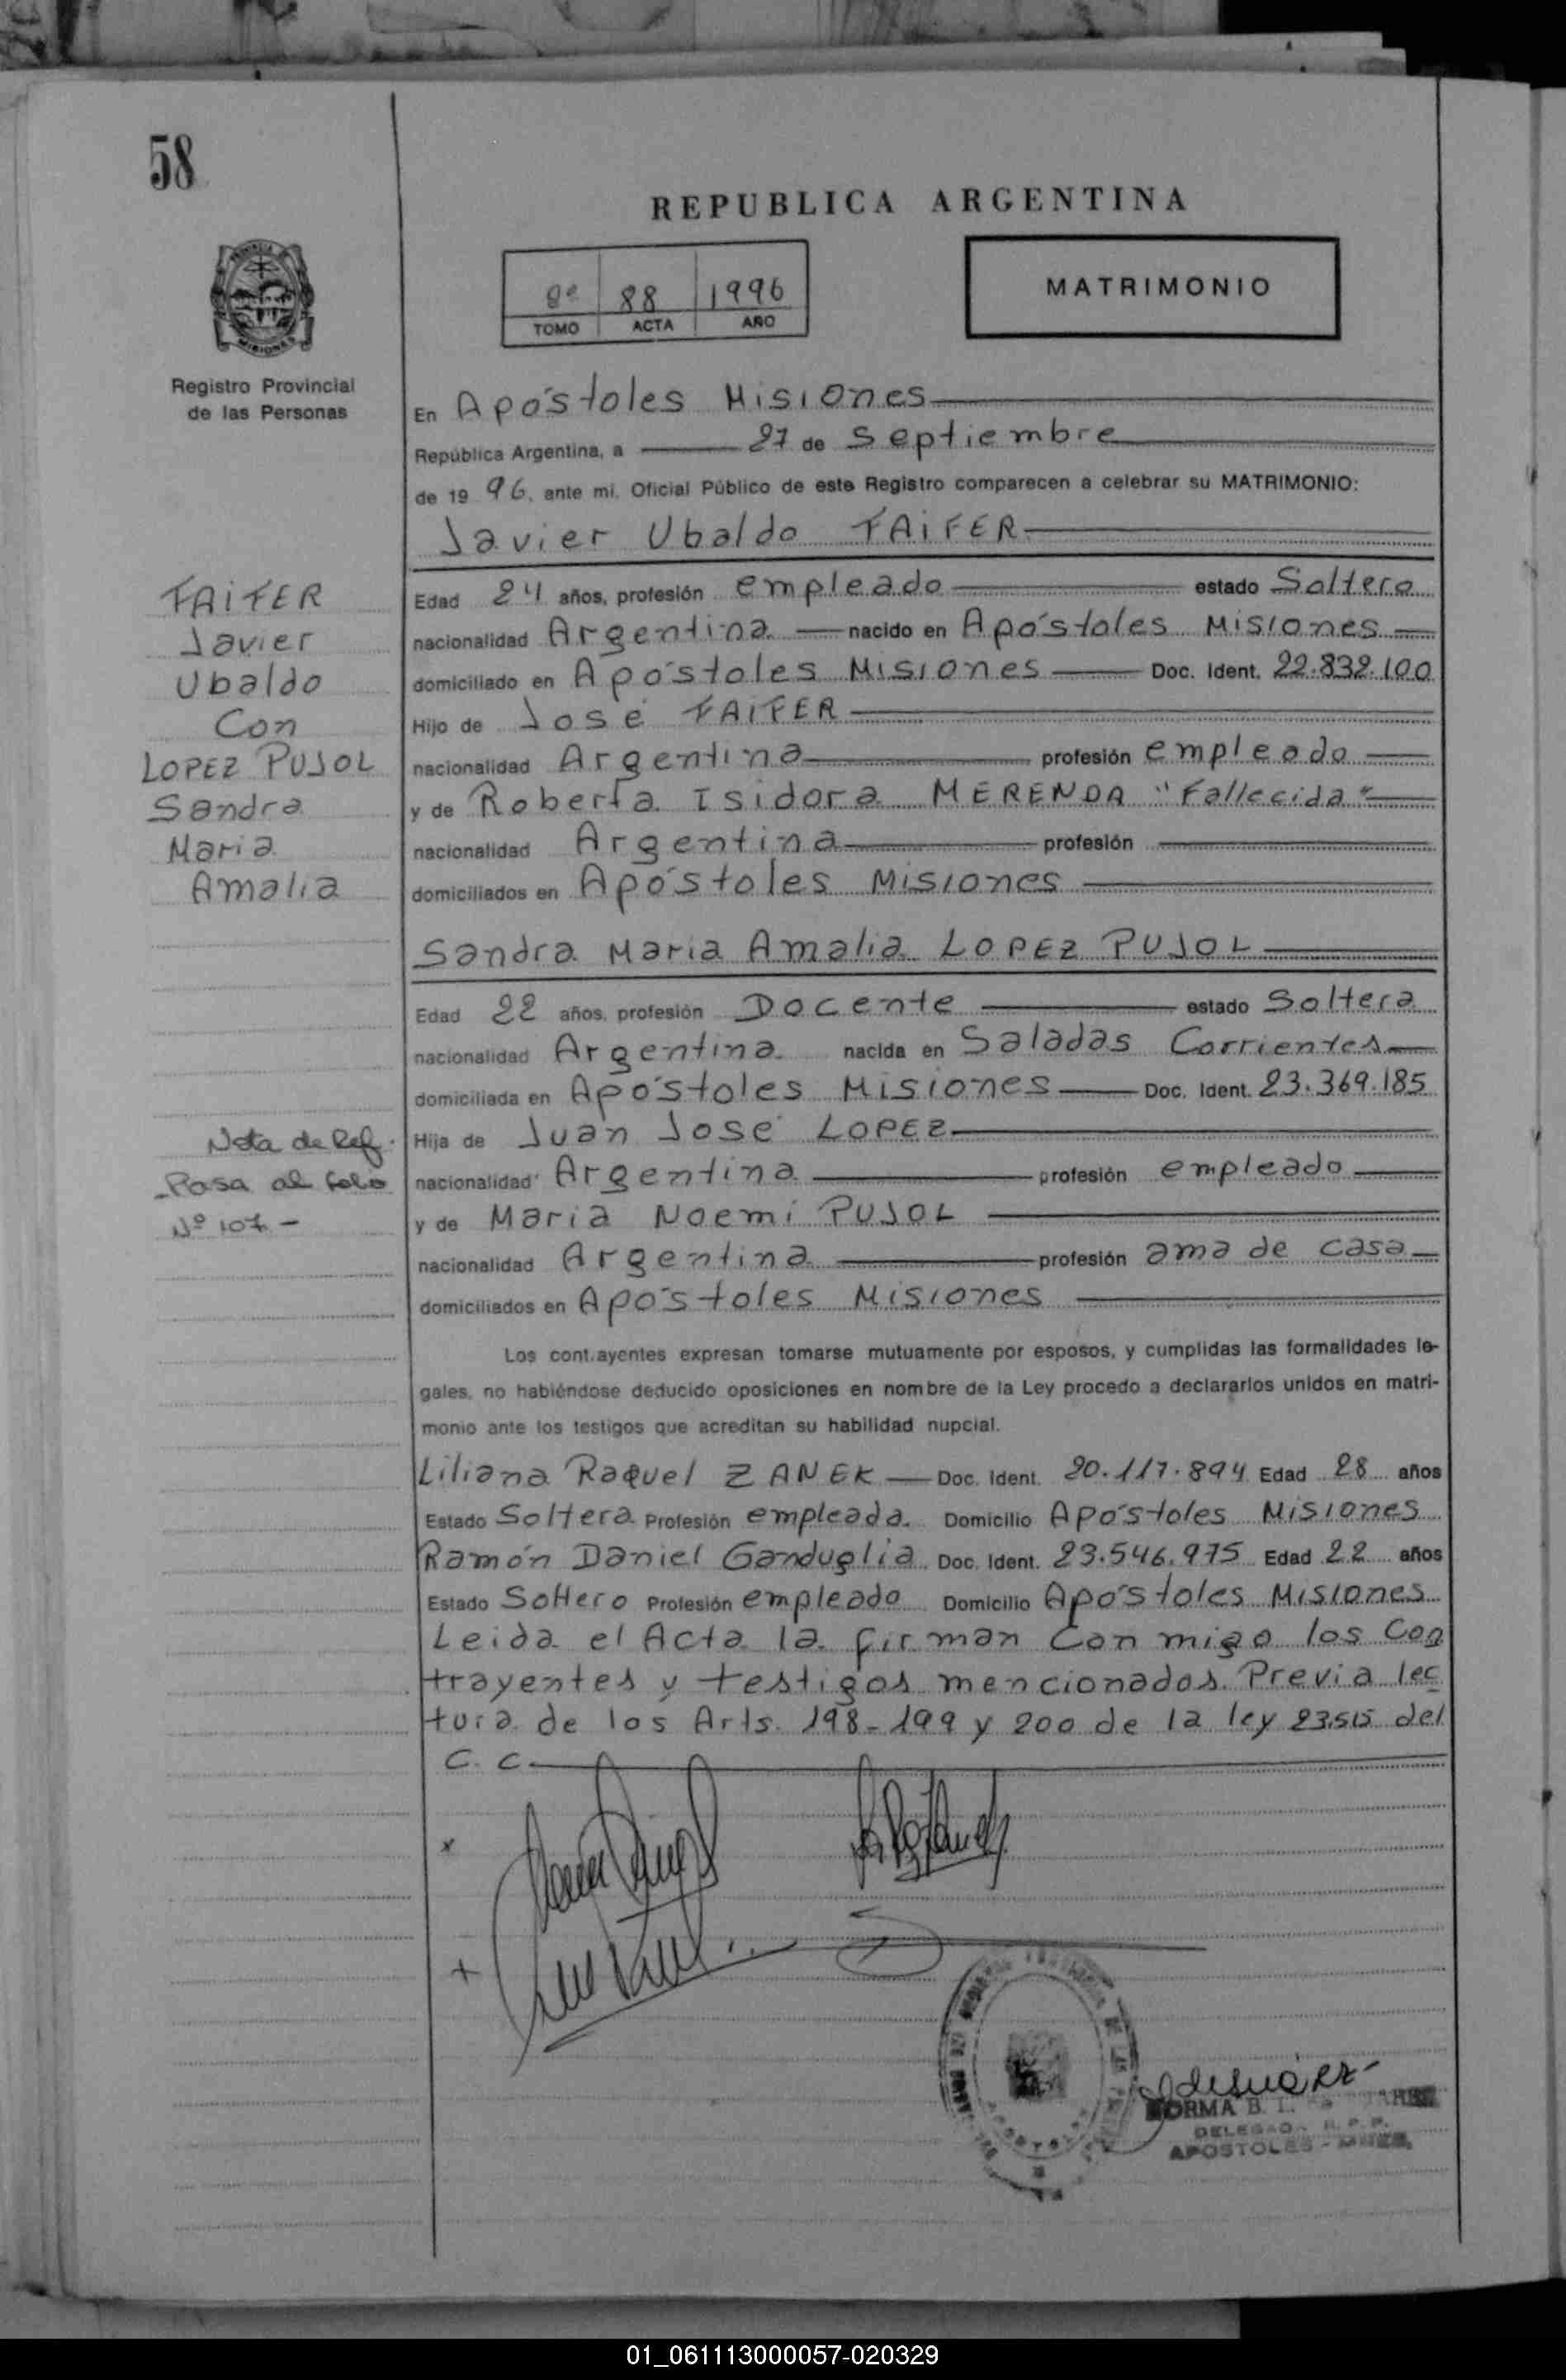 58
REPUBLICA ARGENTINA
MATRIMONIO
88 1996
TOMO ACTA AÑO
MISIONES
Registro Provincial
de las Personas
En Apóstoles Misiones
República Argentina, a 27 de Septiembre
de 1996, ante mi, Oficial Público de este Registro comparecen a celebrar su MATRIMONIO:
Javier Ubaldo FAIFER
FAIFER
Javier
Ubaldo
Con
LOPEZ PUJOL
Sandra
Maria
Amalia
Edad 24 años, profesión empleado estado Soltero
nacionalidad Argentina nacido en Apóstoles Misiones
domiciliado en Apóstoles Misiones Doc. Ident. 22.832.100
Hijo de José FAIFER
nacionalidad Argentina profesión empleado
y de Roberta Isidora MERENDA "Fallecida"
nacionalidad Argentina profesión
domiciliados en Apóstoles Misiones
Sandra Maria Amalia LOPEZ PUJOL
Edad 22 años, profesión Docente estado Soltera
nacionalidad Argentina nacida en Saladas Corrientes
domiciliada en Apóstoles Misiones Doc. Ident. 23.369.185
Hija de Juan José LOPEZ
nacionalidad Argentina profesión empleado
y de Maria Noemi PUJOL
nacionalidad Argentina profesión ama de casa
domiciliados en Apóstoles Misiones
Nota de Ref.
Pasa al folio
Nº 107.-
Los contrayentes expresan tomarse mutuamente por esposos, y cumplidas las formalidades le-
gales, no habiéndose deducido oposiciones en nombre de la Ley procedo a declararlos unidos en matri-
monio ante los testigos que acreditan su habilidad nupcial.
Liliana Raquel ZANEK Doc. Ident. 20.117.894 Edad 28 años
Estado Soltera Profesión empleada. Domicilio Apóstoles Misiones
Ramón Daniel Ganduglia Doc. Ident. 23.546.975 Edad 22 años
Estado Soltero Profesión empleado Domicilio Apóstoles Misiones
Leida el Acta la firman Con migo los Con
trayentes y testigos mencionados. Previa lec
tura de los Arts. 198-199 y 200 de la ley 23.515 del
C. C.
NORMA B.
DELEGADA R. P. P.
APOSTOLES - MNES.
01_061113000057-020329